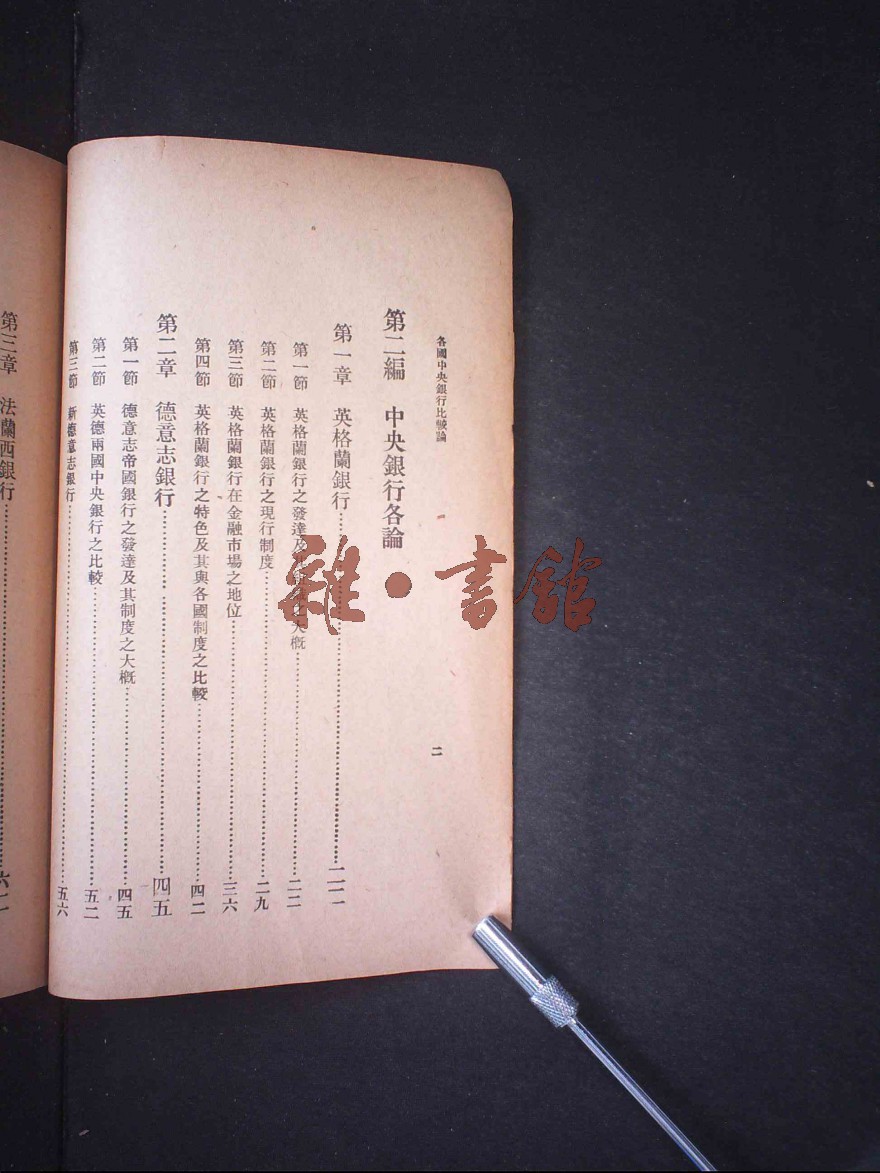 各國中央銀行比較論
二
第二編　中央銀行各論
第一章　英格蘭銀行……二二
第一節　英格蘭銀行之發達及其之大概……二二
第二節　英格蘭銀行之現行制度……二九
第三節　英格蘭銀行在金融市場之地位……三六
第四節　英格蘭銀行之特色及其與各國制度之比較……四二
第二章　德意志銀行……四五
第一節　德意志帝國銀行之發達及其制度之大概……四五
第二節　英德兩國中央銀行之比較……五二
第三節　新德意志銀行……五六
第三章　法蘭西銀行……
雜·書館